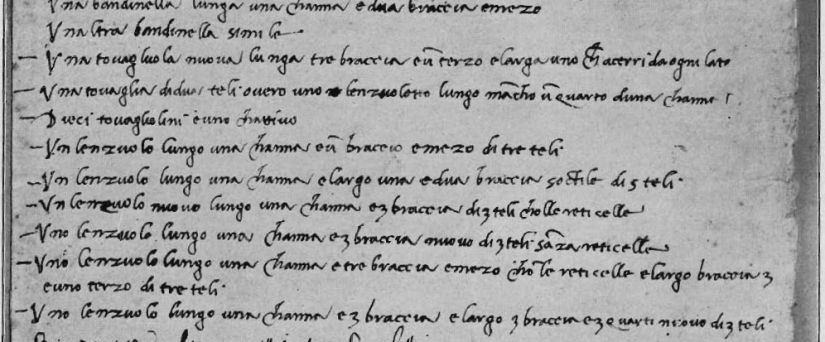 Vna bandinella lunga una channa e dua braccia emezo
Vnaltra bandinella simile
– Vna tovagliola nuova lunga tre braccia eun terzo elarga uno
– Vna tovaglia didua teli overo uno lenzuolotto lungo mancho un quarto duna channa
– Dieci tovagliolini euno chattivo
– Vn lenzuolo lungo una channa eun braccio emezo di tre teli
– Vn lenzuolo lungo una channa elargo una edua braccia sottile di 5 teli
– Vn lenzuolo nuovo lungo una channa e 3 braccia di 3 teli cholle reticelle
– Vno lenzuolo lungo una channa e 3 braccia nuovo di 3 teli sanza reticelle
– Vno lenzuolo lungo una channa etre braccia emezo cholle reticelle elargo braccia 3
euno terzo di tre teli
– Vno lenzuolo lungo una channa e 3 braccia elargo 3 braccia e 3 quarti nuovo di 3 teli